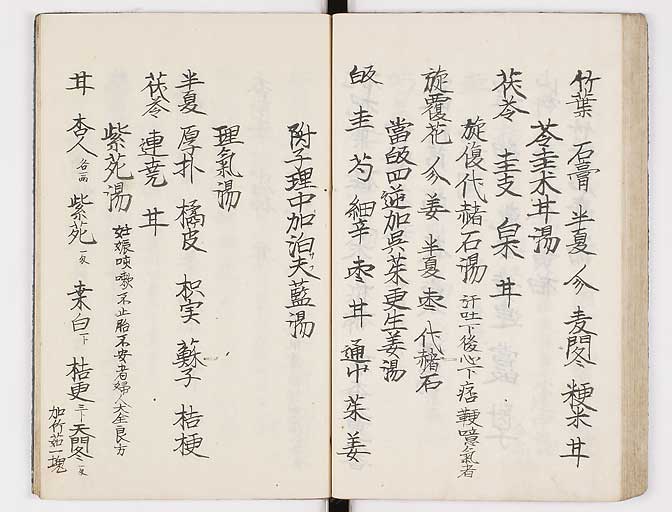 竹葉 石膏 半夏 参 麦門冬 粳米 甘
苓圭朮甘湯
茯苓 圭支 白朮 甘
旋復代赭石湯 汗吐下後心下痞鞕噫氣者
旋覆花 参 姜 半夏 枣 代赭石
當皈四逆加呉茱更生姜湯
皈 圭 芍 細辛 枣 甘 通中 茱 姜
附子理中加泊夫藍湯
理氣湯
半夏 厚朴 橘皮 枳実 蘇子 桔梗
茯苓 連堯 甘
紫苑湯 妊娠咳嗽不止胎不安者婦人大全良方
甘 杏人 各両 紫苑 桒白 桔更 天門冬
加竹茹一塊